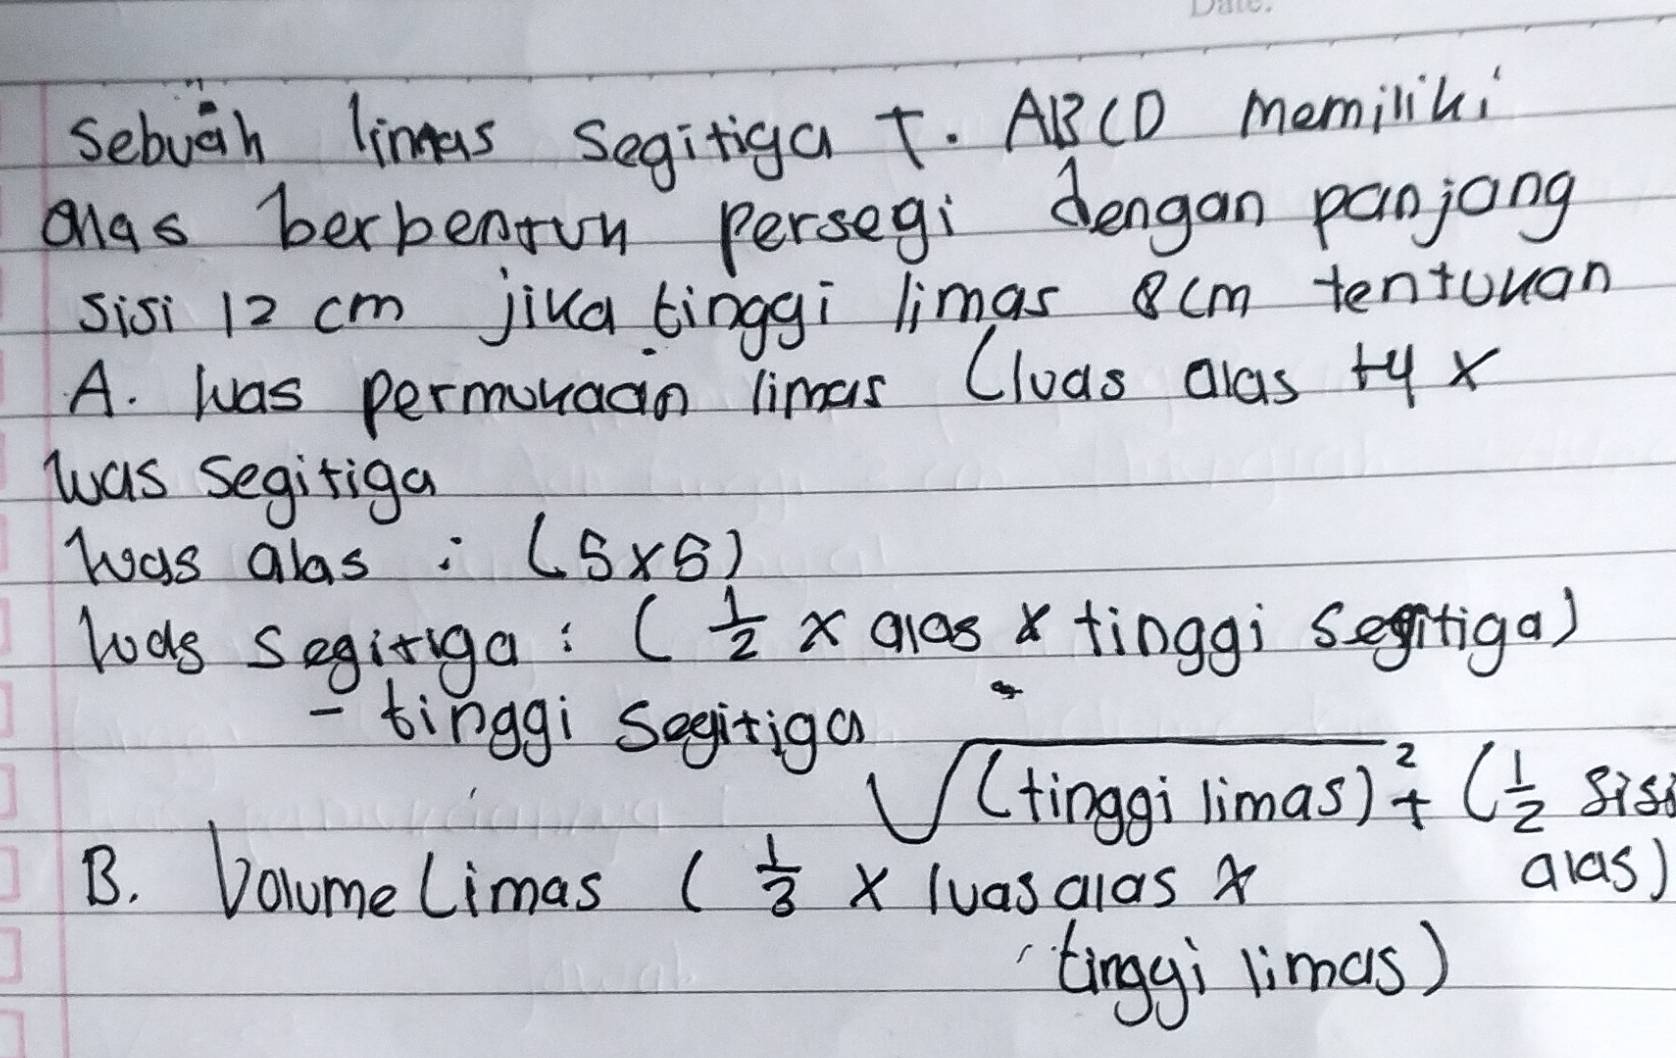 Date.
Sebuah limas segitiga T. ABCD memiliki
alas berbentuk persegi dengan panjang
sisi 12 cm jika tinggi limas 8cm tentukan
A. luas permukaan limas (luas alas +4 x
luas segitiga
luas alas : (S x S)
luas segitiga : ( 1/2 x alas x tinggi segitiga)
- tinggi segitiga
√(tinggi limas)² + (1/2 sisi
alas)
B. Volume limas ( 1/3 x luas alas x
tinggi limas)